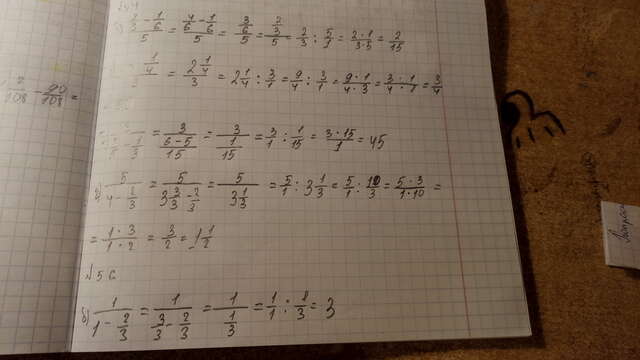 (2/3 - 1/6)/5 = (4/6 - 1/6)/5 = (3/6)/5 = (2/3)/5 = 2/3 : 5/1 = (2·1)/(3·5) = 2/15
1/4 = (2 1/4)/3 = 2 1/4 : 3/1 = 9/4 : 3/1 = (9·1)/(4·3) = (3·1)/(4·1) = 3/4
1/3 = 3/((6-5)/15) = 3/(1/15) = 3/1 : 1/15 = (3·15)/1 = 45
5/(4 - 2/3) = 5/(3 3/3 - 2/3) = 5/(3 1/3) = 5/1 : 3 1/3 = 5/1 : 10/3 = (5·3)/(1·10) =
= (1·3)/(1·2) = 3/2 = 1 1/2
№56
б) 1/(1 - 2/3) = 1/(3/3 - 2/3) = 1/(1/3) = 1/1 : 1/3 = 3